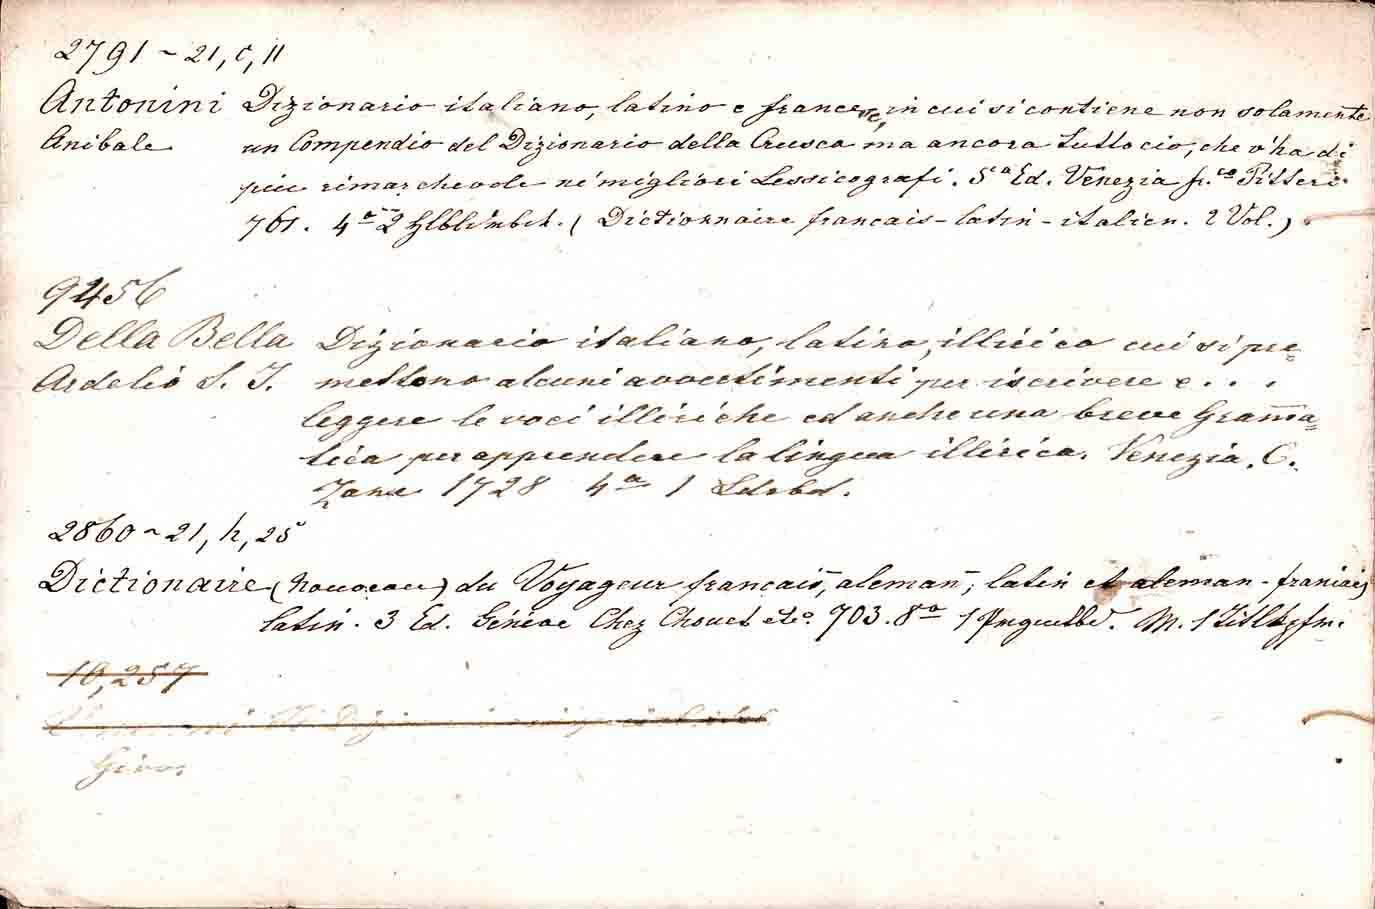 2791 ~ 21, c, 11
Antonini Dizionario italiano, latino e francese, in cui si contiene non solamente
Anibale un Compendio del Dizionario della Crusca ma ancora tutto cio, che v'ha di
più rimarchevole ne' migliori Lessicografi. 5a Ed. Venezia fr.co Pitteri
761. 4a 2 Hlblimbd. (Dictionnaire francais-latin-italien. 2 Vol.)
9456
Della Bella Dizionario italiano, latino, illirico cui si pre=
Ardelio S. J. mettono alcuni avvertimenti per iscrivere e . . .
leggere le voci illiriche ed anche una breve Gram̄a=
tica per apprendere la lingua illirica. Venezia. C.
Zane 1728 4a 1 Ldrbd.
2860 ~ 21, h, 25
Dictionaire (nouveau) du Voyageur francais-, aleman-, latin et aleman-francais
latin. 3 Ed. Généve Chez Chouet etc. 703. 8a 1 M. 1 Titlkpfr.
10,257
Giov.